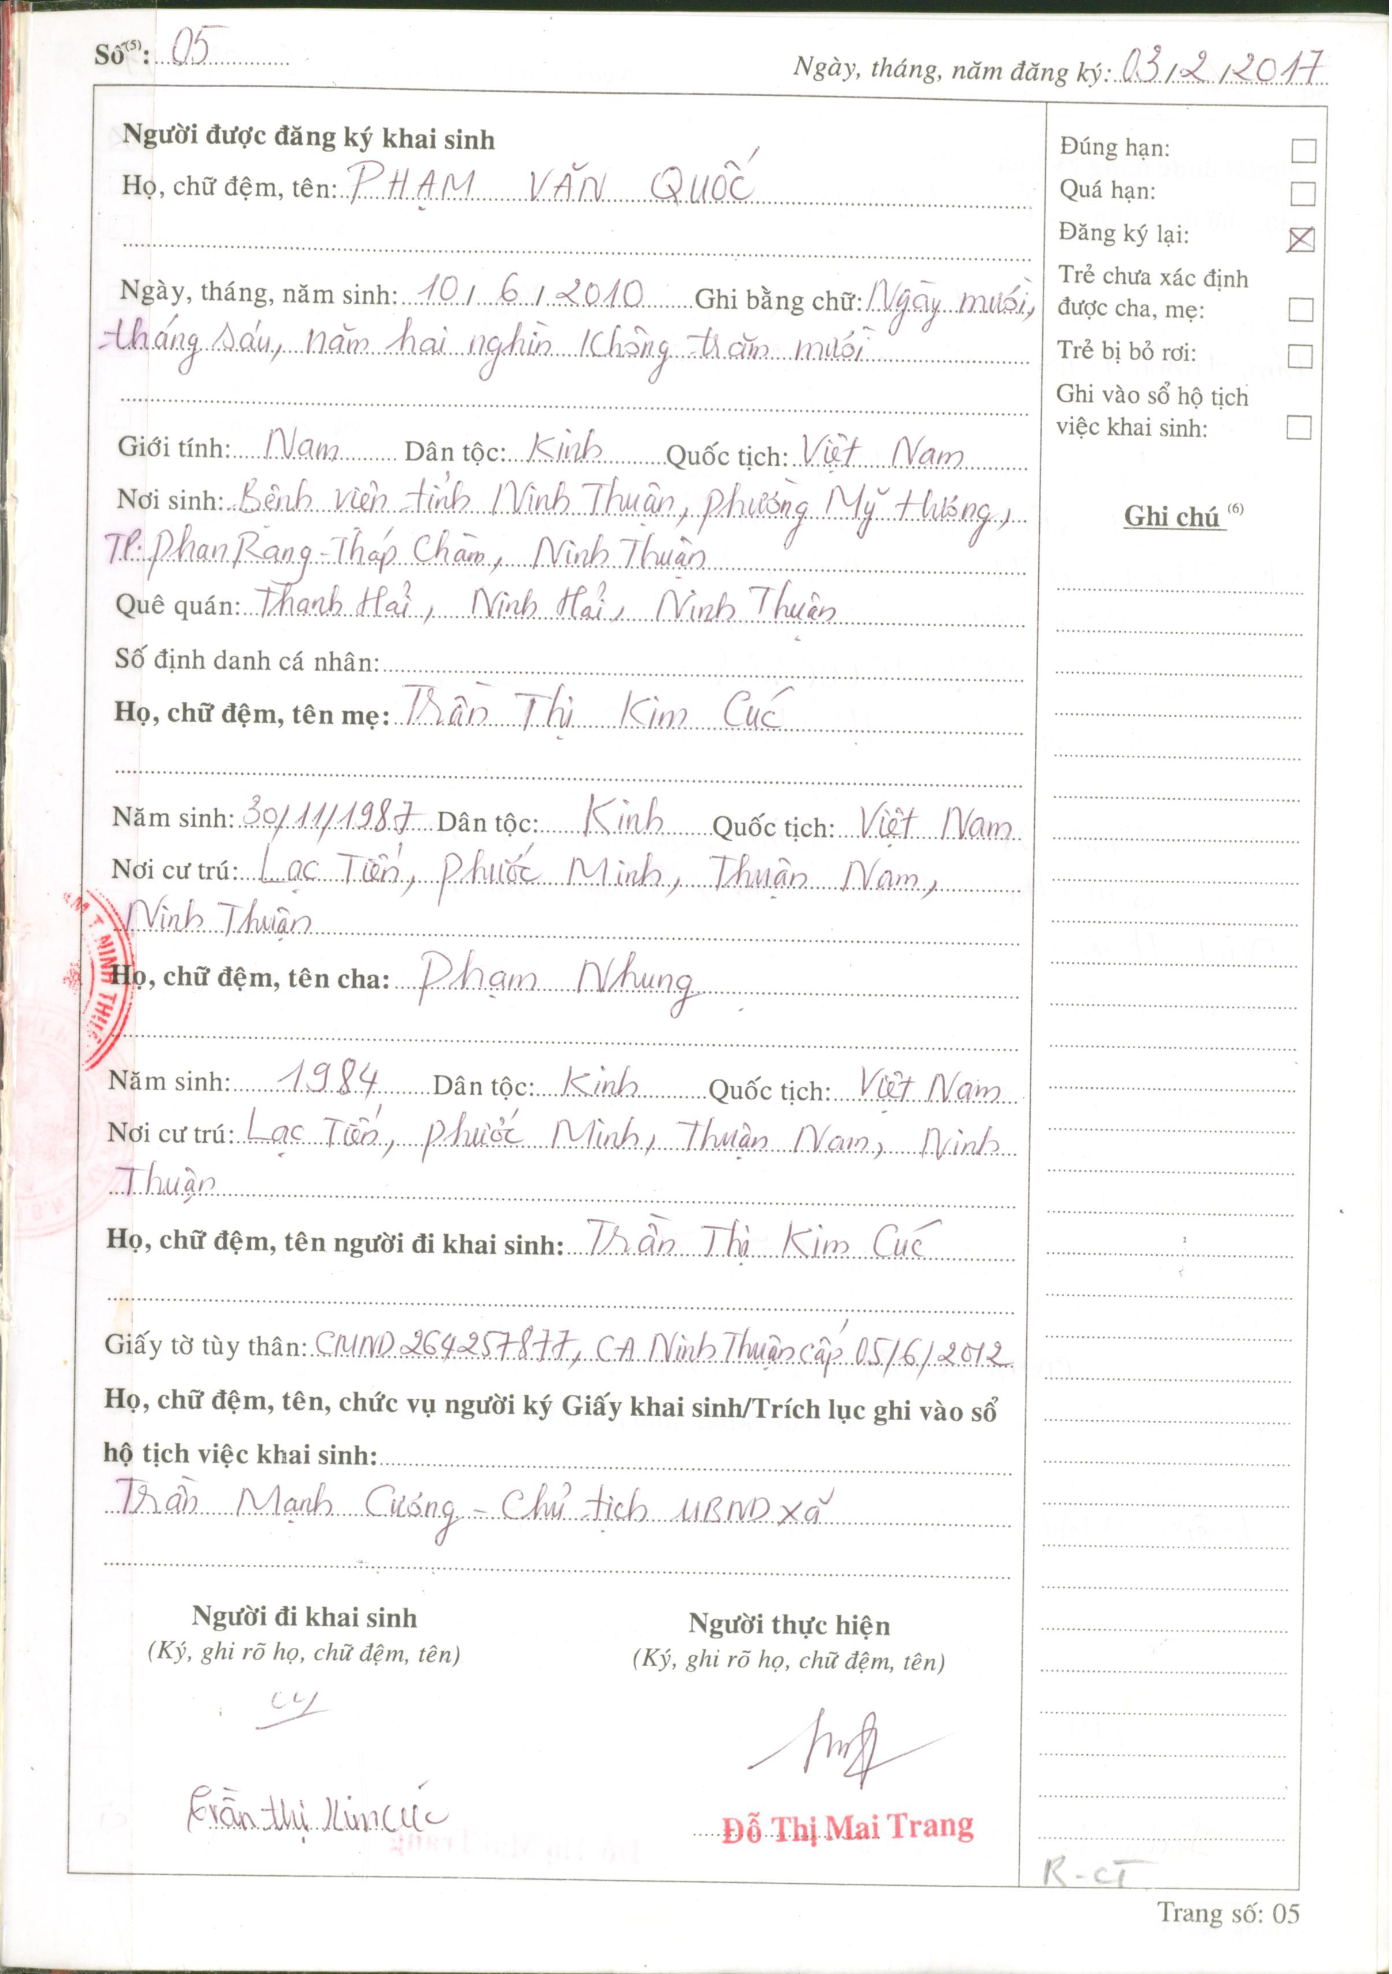 Số⁽⁵⁾: 05
Ngày, tháng, năm đăng ký: 03/2/2017
Người được đăng ký khai sinh
Họ, chữ đệm, tên: PHẠM VĂN QUỐC
Ngày, tháng, năm sinh: 10/6/2010 Ghi bằng chữ: Ngày mười,
tháng sáu, năm hai nghìn không trăm mười
Giới tính: Nam Dân tộc: Kinh Quốc tịch: Việt Nam
Nơi sinh: Bệnh viện tỉnh Ninh Thuận, phường Mỹ Hương,
TP. Phan Rang - Tháp Chàm, Ninh Thuận
Quê quán: Thanh Hải, Ninh Hải, Ninh Thuận
Số định danh cá nhân:
Họ, chữ đệm, tên mẹ: Trần Thị Kim Cúc
Năm sinh: 30/11/1987 Dân tộc: Kinh Quốc tịch: Việt Nam
Nơi cư trú: Lạc Tiến, Phước Minh, Thuận Nam,
Ninh Thuận
Họ, chữ đệm, tên cha: Phạm Nhung
Năm sinh: 1984 Dân tộc: Kinh Quốc tịch: Việt Nam
Nơi cư trú: Lạc Tiến, Phước Minh, Thuận Nam, Ninh
Thuận
Họ, chữ đệm, tên người đi khai sinh: Trần Thị Kim Cúc
Giấy tờ tùy thân: CMND 264257877, CA Ninh Thuận cấp 05/6/2012
Họ, chữ đệm, tên, chức vụ người ký Giấy khai sinh/Trích lục ghi vào sổ
hộ tịch việc khai sinh:
Trần Mạnh Cường - Chủ tịch UBND xã
Người đi khai sinh
(Ký, ghi rõ họ, chữ đệm, tên)
Trần Thị Kim Cúc
Người thực hiện
(Ký, ghi rõ họ, chữ đệm, tên)
Đỗ Thị Mai Trang
Đúng hạn:
Quá hạn:
Đăng ký lại:
Trẻ chưa xác định
được cha, mẹ:
Trẻ bị bỏ rơi:
Ghi vào sổ hộ tịch
việc khai sinh:
Ghi chú ⁽⁶⁾
R-CT
Trang số: 05